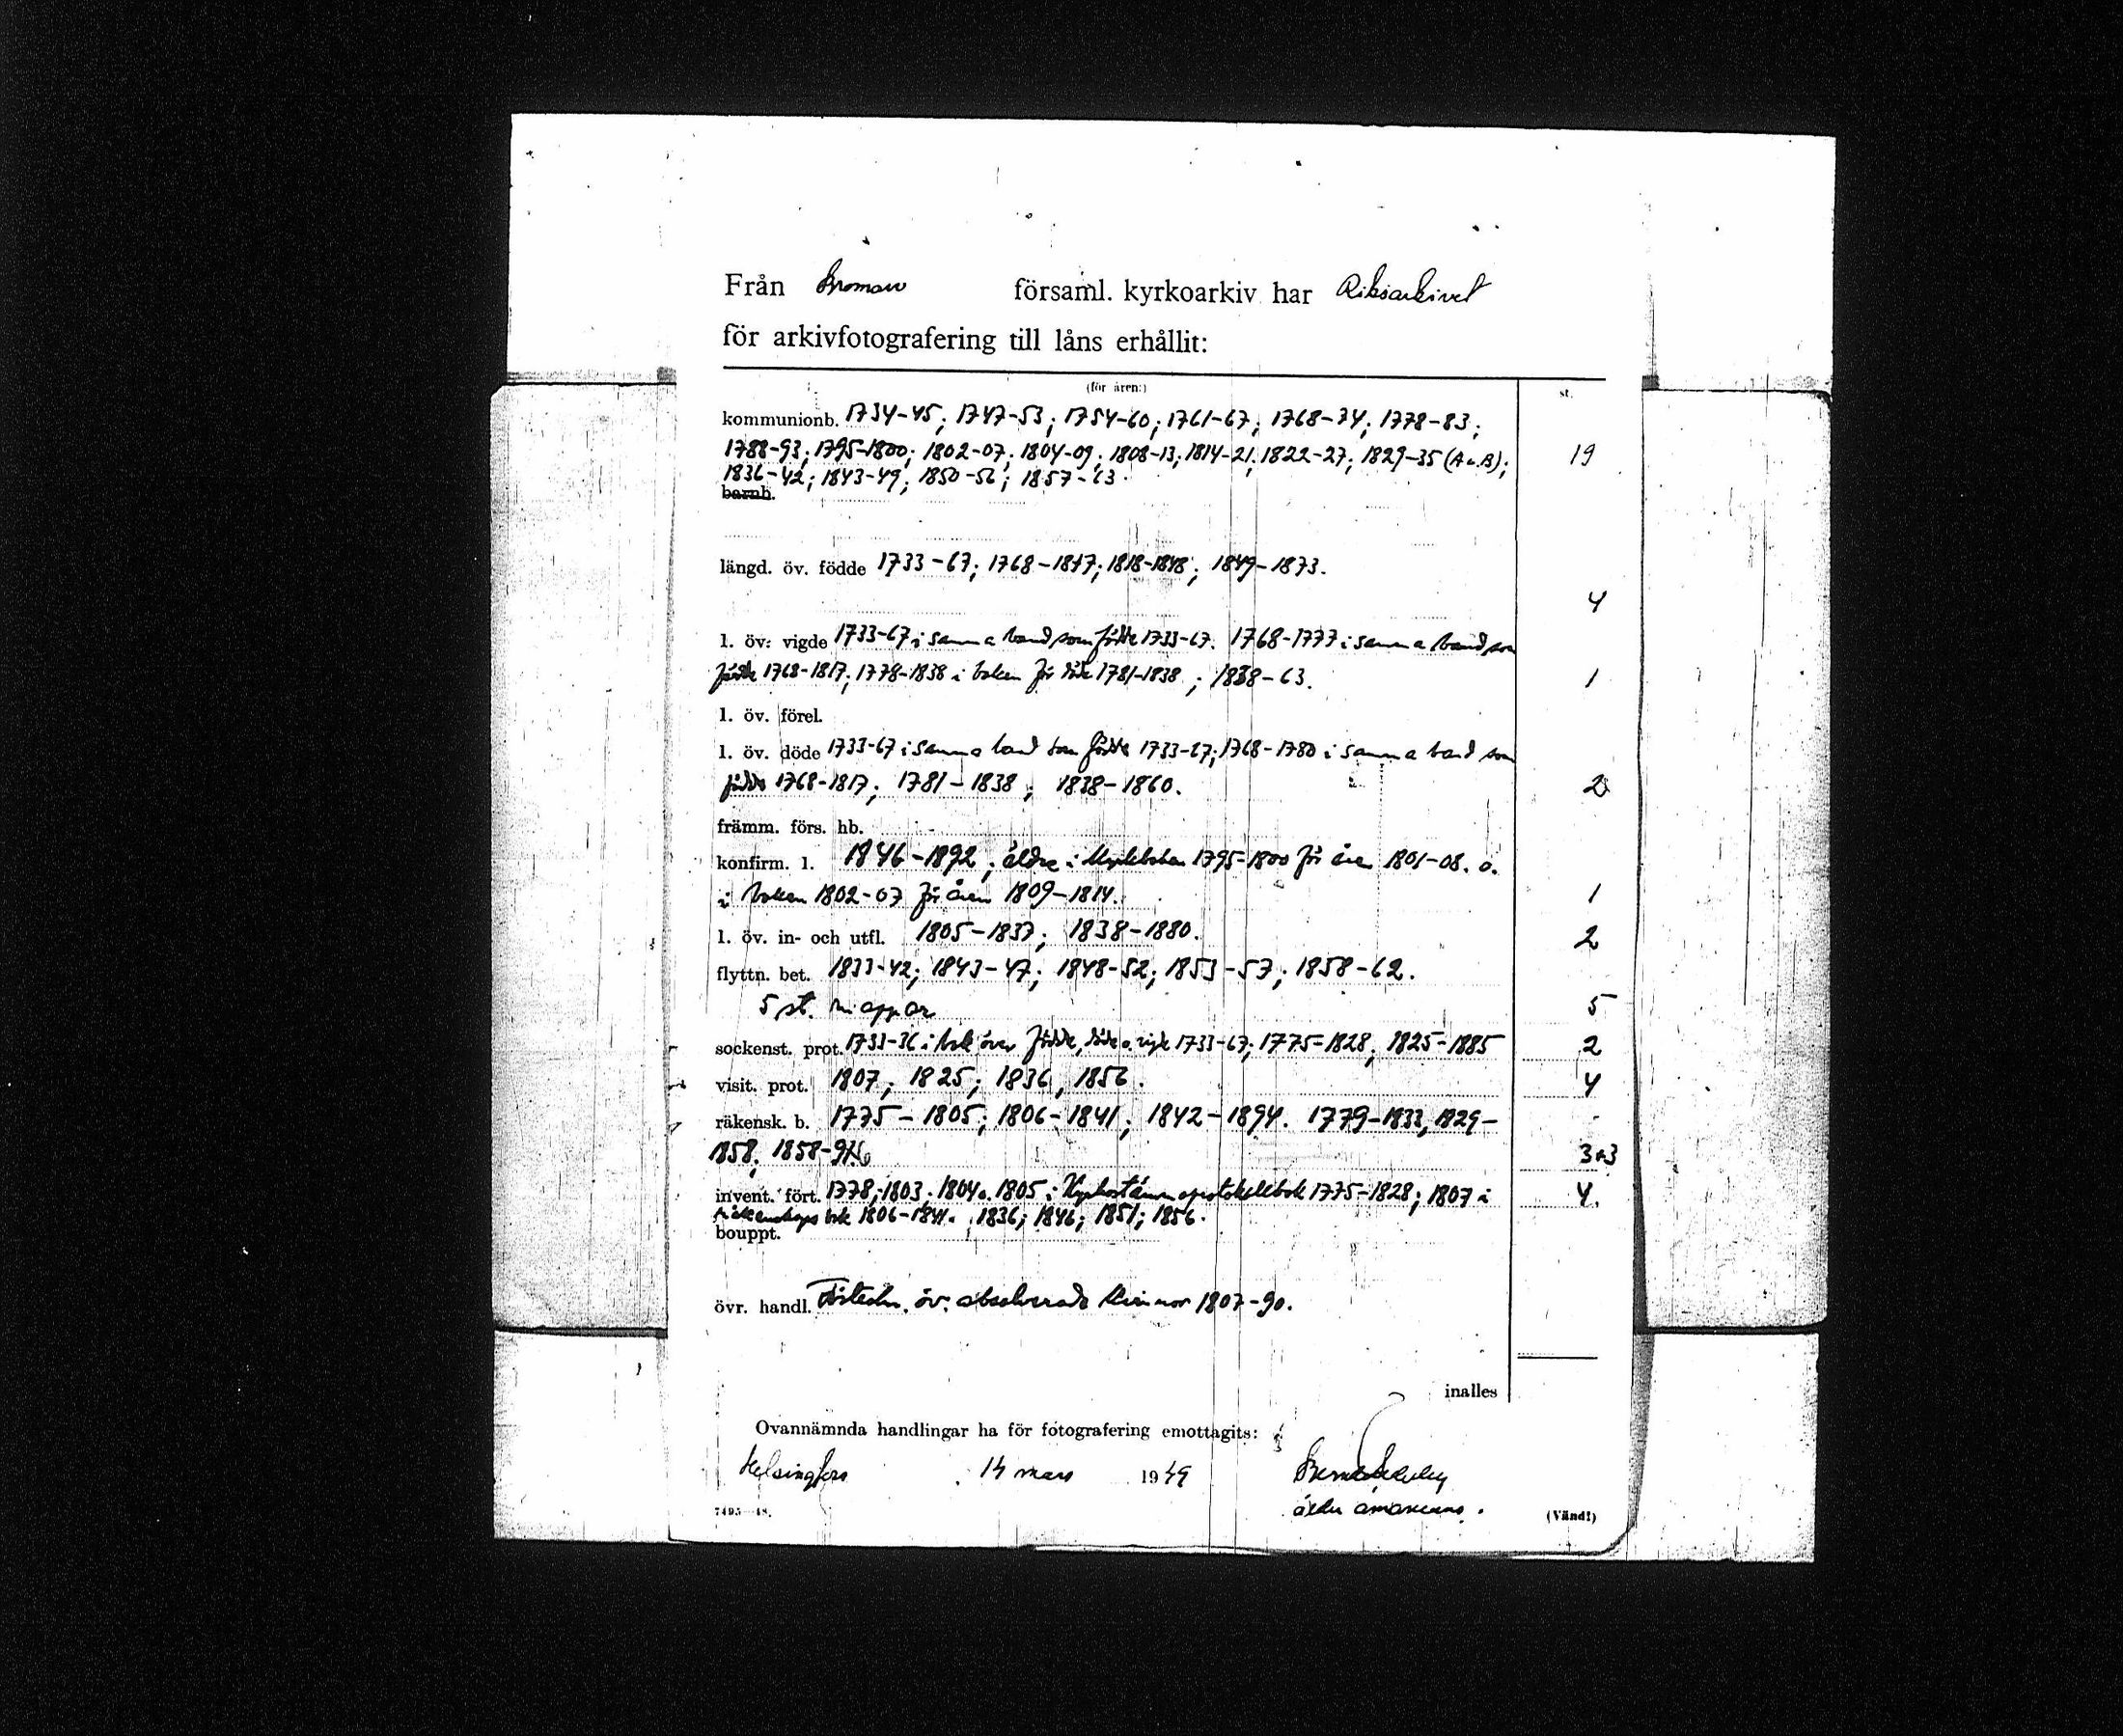 Från Bromarv församl. kyrkoarkiv har Riksarkivet
för arkivfotografering till låns erhållit:
(för åren:) st.
kommunionb. 1734-45; 1747-53; 1754-60; 1761-67; 1768-74; 1778-83;
1788-93; 1795-1800; 1802-07; 1804-09; 1808-13; 1814-21; 1822-27; 1829-35 (A o. B); 19
1836-42; 1843-49; 1850-56; 1857-63.
barnb.
längd. öv. födde 1733-67; 1768-1817; 1818-1848; 1849-1873.
4
l. öv. vigde 1733-67 i samma band som födde 1733-67. 1768-1777 i samma band som
födde 1768-1817; 1778-1838 i boken för döde 1781-1838; 1838-63. 1
l. öv. förel.
l. öv. döde 1733-67 i samma band som födde 1733-67; 1768-1780 i samma band som
födde 1768-1817; 1781-1838; 1838-1860. 2
främm. förs. hb.
konfirm. l. 1846-1892; äldre i 1795-1800 för åren 1801-08. o.
i boken 1802-07 för åren 1809-1814. 1
l. öv. in- och utfl. 1805-1837; 1838-1880. 2
flyttn. bet. 1833-42; 1843-47; 1848-52; 1853-57; 1858-62.
5 st. mappar 5
sockenst. prot. 1733-36 i bok över födde, döde o. vigde 1733-67; 1775-1828; 1825-1885 2
visit. prot. 1807; 1825; 1836, 1856. 4
räkensk. b. 1775-1805; 1806-1841; 1842-1894. 1779-1833, 1829-
1858; 1858-96 3+3
invent. fört. 1778; 1803. 1804 o. 1805 i Kyrkostämmoprotokollsbok 1775-1828; 1807 i 4.
räkenskaps bok 1806-1841. 1836; 1846; 1851; 1856.
bouppt.
övr. handl. Förteckn. öv. absolverade kvinnor 1807-90.
inalles
Ovannämnda handlingar ha för fotografering emottagits:
Helsingfors 14 mars 1949
äldre amanuens.
7495—48. (Vänd!)